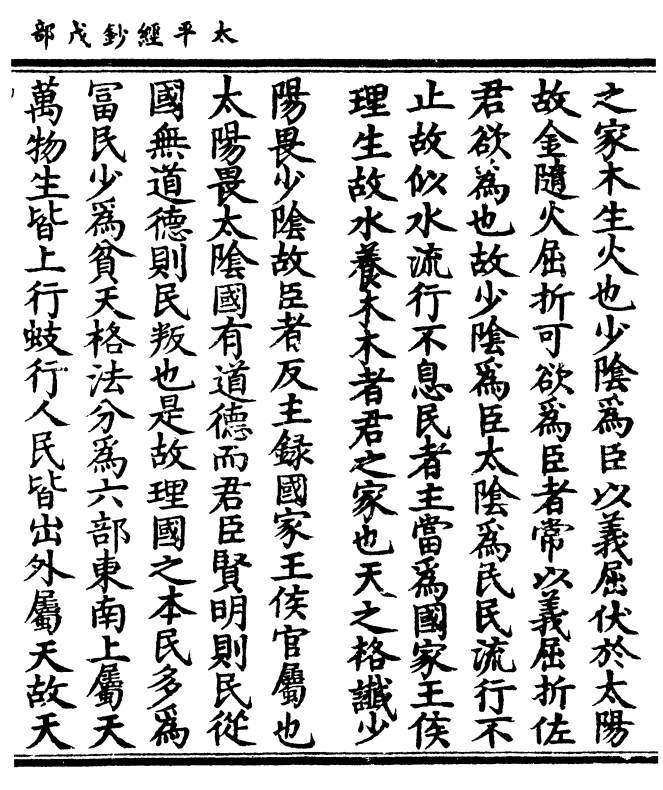 太平經鈔戊部
之家木生火也少陰爲臣以義屈伏於太陽
故金隨火屈折可欲爲臣者常以義屈折佐
君欲爲也故少陰爲臣太陰爲民民流行不
止故似水流行不息民者主當爲國家王侯
理生故水養木木者君之家也天之格讖少
陽畏少陰故臣者反主録國家王侯官屬也
太陽畏太陰國有道德而君臣賢明則民從
國無道德則民叛也是故理國之本民多爲
富民少爲貧天格法分爲六部東南上屬天
萬物生皆上行蚑行人民皆出外屬天故天